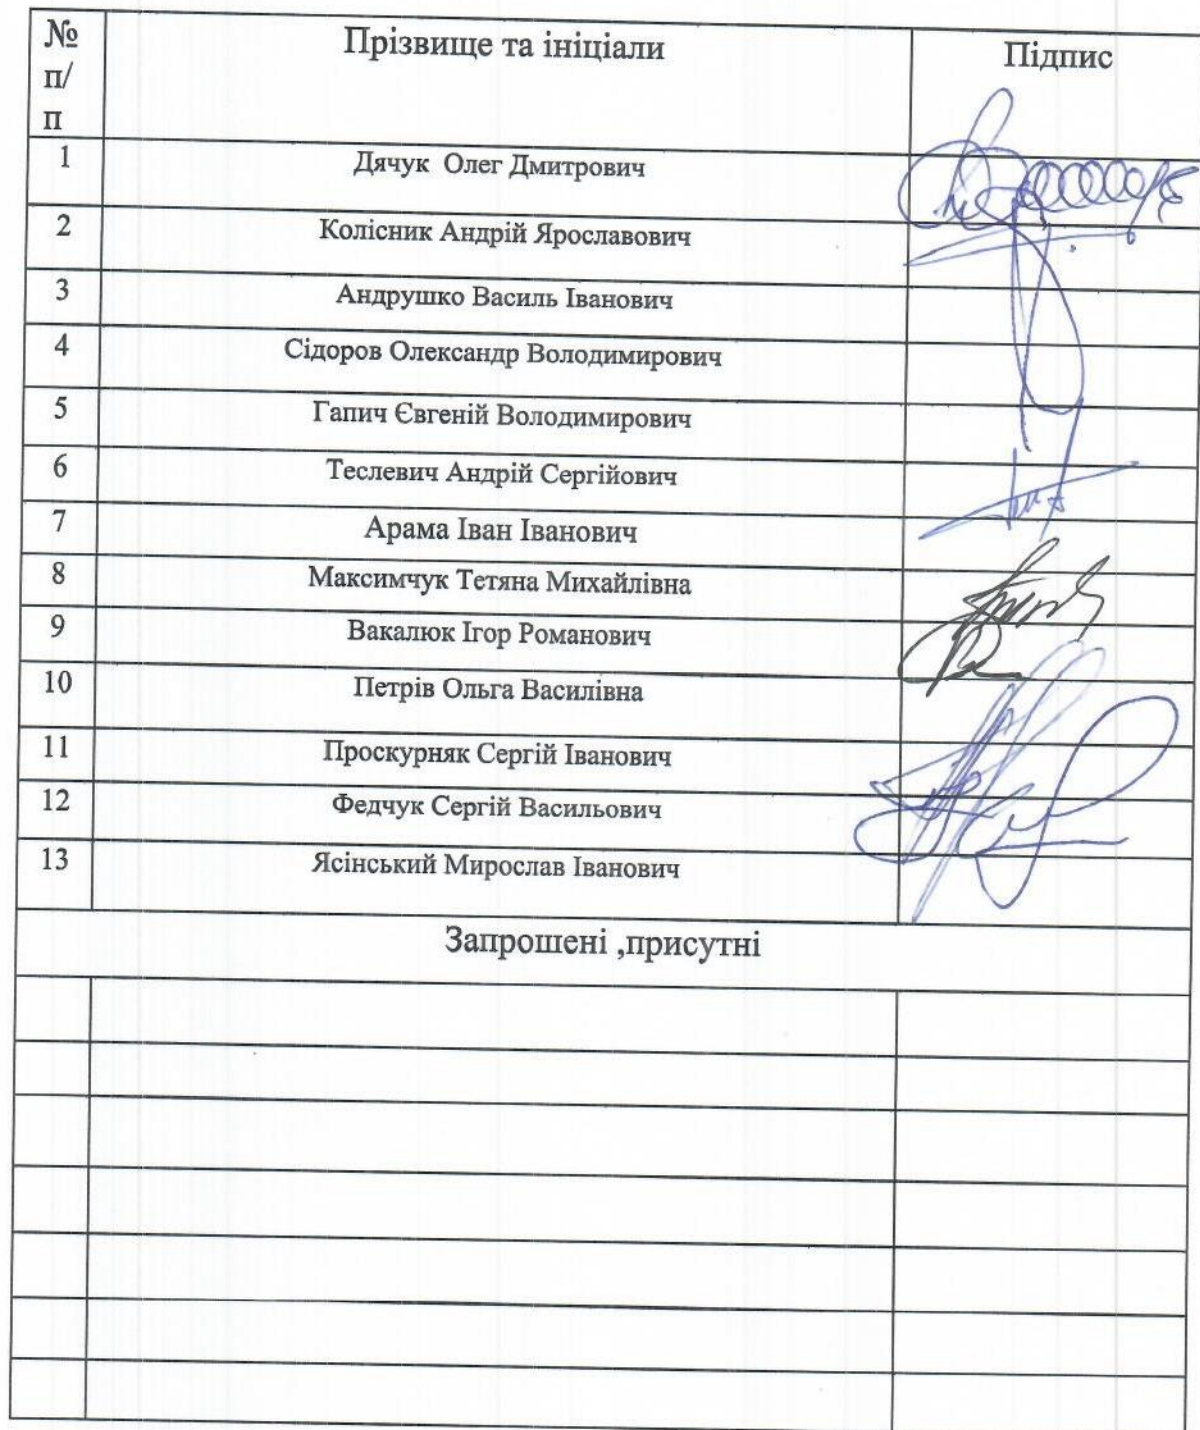 № Прізвище та ініціали Підпис
п/
п
1 Дячук Олег Дмитрович
2 Колісник Андрій Ярославович
3 Андрушко Василь Іванович
4 Сідоров Олександр Володимирович
5 Гапич Євгеній Володимирович
6 Теслевич Андрій Сергійович
7 Арама Іван Іванович
8 Максимчук Тетяна Михайлівна
9 Вакалюк Ігор Романович
10 Петрів Ольга Василівна
11 Проскурняк Сергій Іванович
12 Федчук Сергій Васильович
13 Ясінський Мирослав Іванович
Запрошені ,присутні